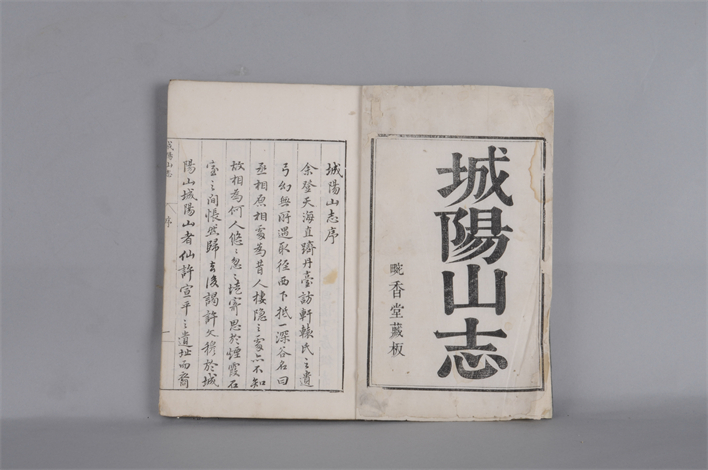 城陽山志
畹香堂藏板
城陽山志序
余登天海直躋丹臺訪軒轅氏之遺
弓幻無所遇取徑西下抵一深谷名曰
丞相原相處為昔人棲隱之處亦不知
故相為何人倏之忽之境寄思於煙霞石
室之間悵然歸去後謁許文穆於城
陽山城陽山者仙許宣平之遺址而裔
城陽山志
序
一